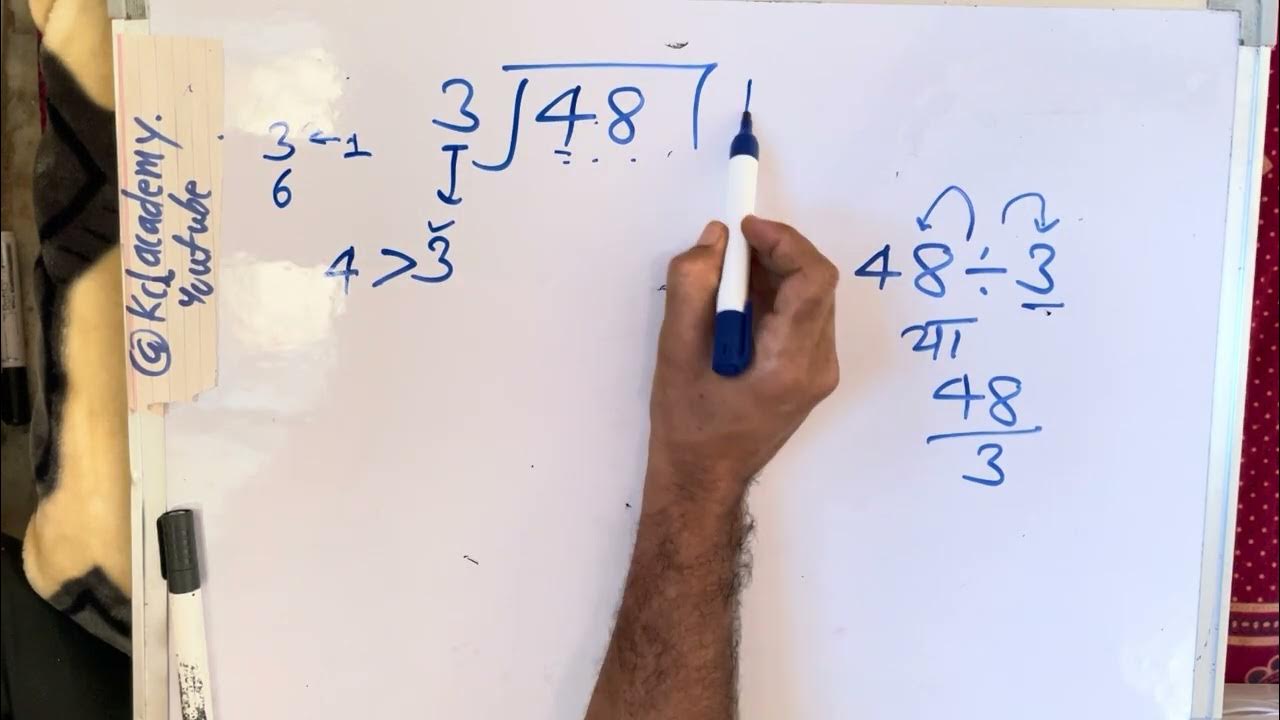 @Kclacademy.
Youtube
3 ← 1
6
3 ) 4 8 ( 1
4 > 3
4 8 ÷ 3
या
48
3